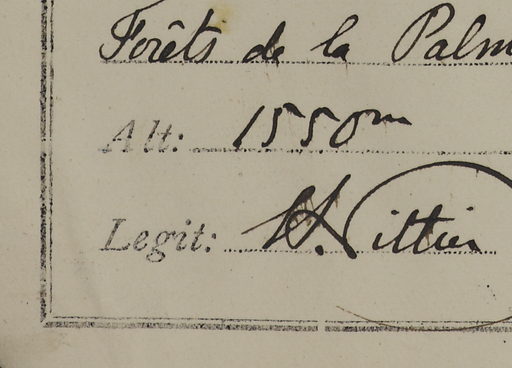 Forêts de la Palm
Alt: 1550m
Legit: H. Pittier